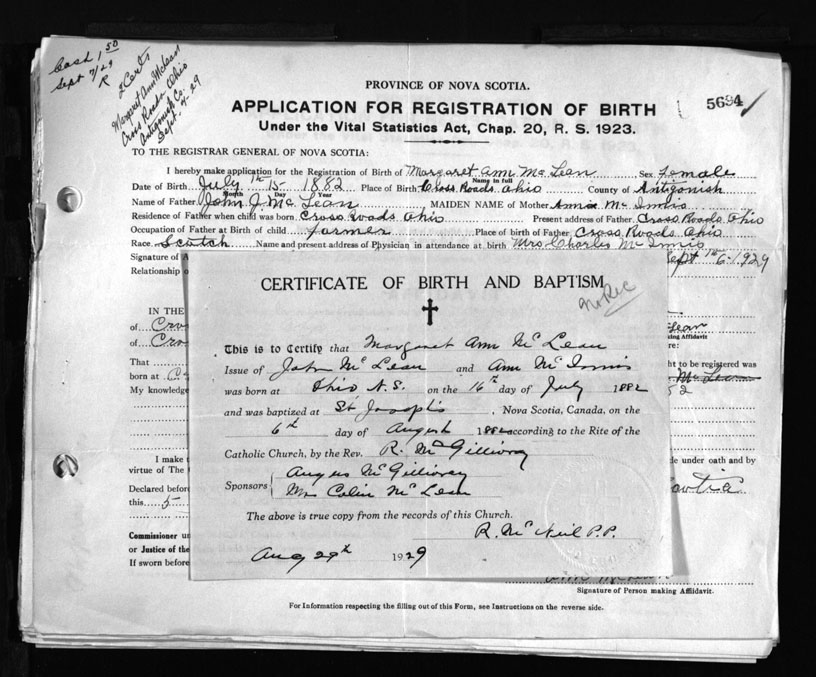 Cash 1 50
Sept 7/29
R
2 Certs
Margaret Ann McLean
Cross Roads Ohio
Antigonish Co.
Sept. 7-29
PROVINCE OF NOVA SCOTIA.
APPLICATION FOR REGISTRATION OF BIRTH
5694
Under the Vital Statistics Act, Chap. 20, R. S. 1923.
TO THE REGISTRAR GENERAL OF NOVA SCOTIA:
I hereby make application for the Registration of Birth of Margaret Ann Mc Lean Sex female
Name in full
Date of Birth July 15th 1882 Place of Birth Cross Roads Ohio County of Antigonish
Month Day Year
Name of Father John J. Mc Lean MAIDEN NAME of Mother Annie Mc Innis
Residence of Father when child was born Cross Roads Ohio Present address of Father Cross Roads Ohio
Occupation of Father at Birth of child farmer Place of birth of Father Cross Roads Ohio
Race Scotch Name and present address of Physician in attendance at birth Mrs Charles Mc Innis
Signature of A Sept 6th 1929
Relationship o
CERTIFICATE OF BIRTH AND BAPTISM
No Rec
This is to Certify that Margaret Ann McLean
Issue of John McLean and Ann McInnis
was born at Ohio N.S. on the 16th day of July 1882
and was baptized at St Joseph's, Nova Scotia, Canada, on the
6th day of August 1882 according to the Rite of the
Catholic Church, by the Rev. R. McGillivray
Sponsors Angus McGillivray
Mrs Colin McLean
The above is true copy from the records of this Church.
R. McNeil P.P.
Aug 29th 1929
IN THE
of Cro
of Cro Lean
king Affidavit
re:
That ht to be registered was
born at C McLean
My knowledge 82
I make t de under oath and by
virtue of The
Declared before
this 5
Commissioner un
or Justice of the
If sworn before
Signature of Person making Affidavit.
For Information respecting the filling out of this Form, see Instructions on the reverse side.